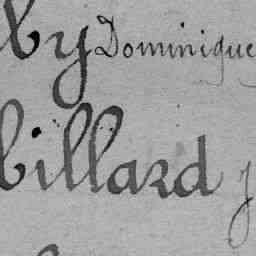 by Dominique
billard j